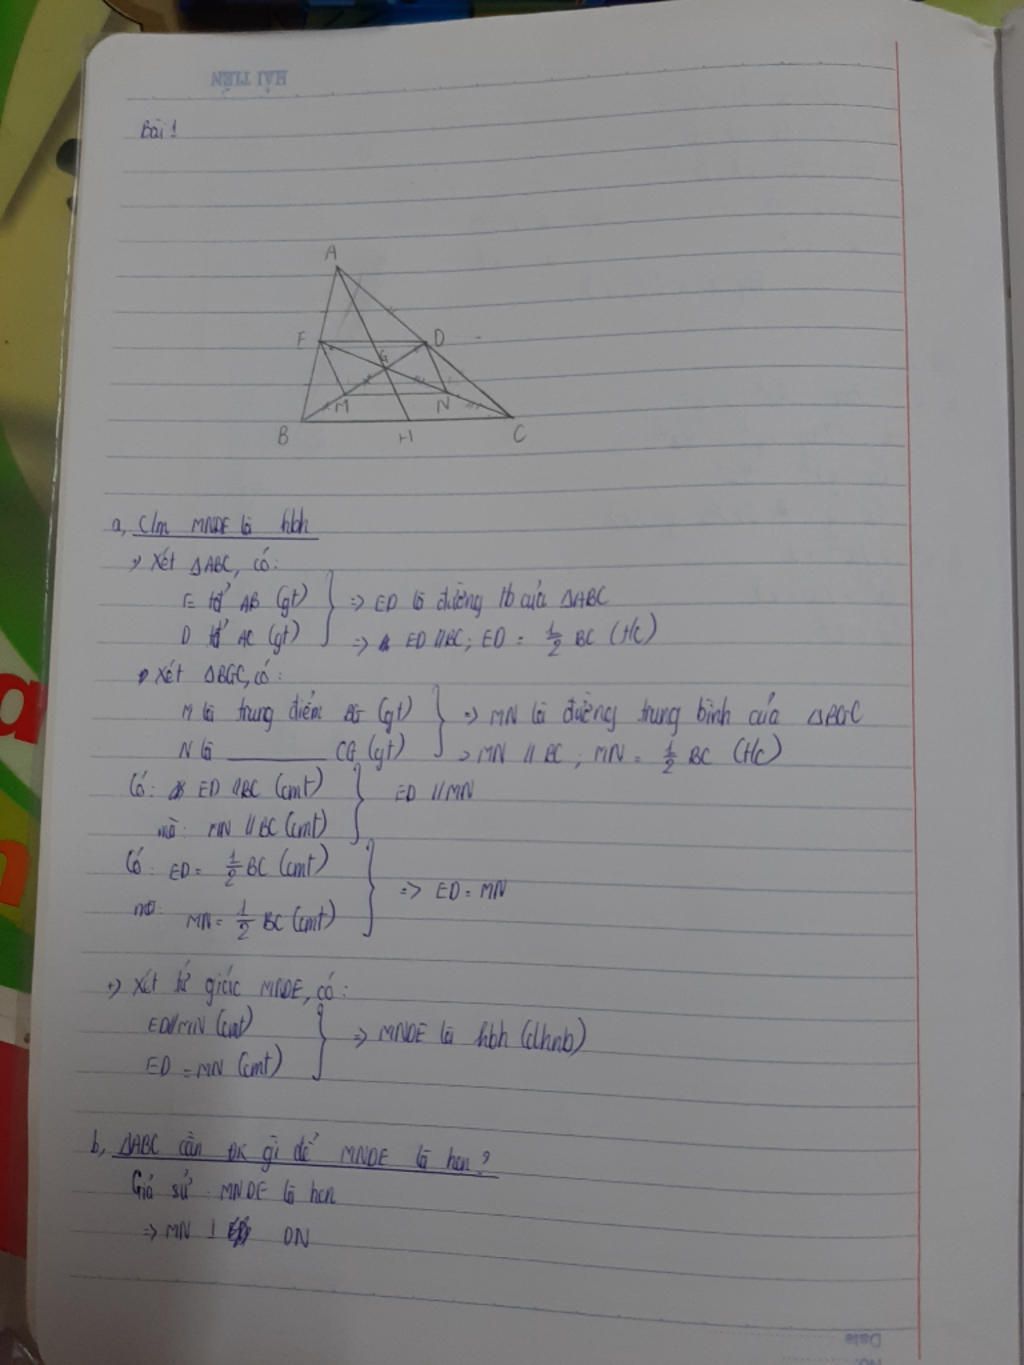 HẢI TIẾN
Bài 1
A
E D
G
M N
B H C
a, C/m MNDE là hbh
+) Xét ΔABC, có:
E tđ AB (gt)
D tđ AC (gt)
=> ED là đường tb của ΔABC
=> ED // BC; ED = 1/2 BC (t/c)
+) Xét ΔBGC, có:
M là trung điểm BG (gt)
N là ______ CG (gt)
=> MN là đường trung bình của ΔBGC
=> MN // BC; MN = 1/2 BC (t/c)
Có: ED // BC (cmt)
mà: MN // BC (cmt)
ED // MN
Có: ED = 1/2 BC (cmt)
mà: MN = 1/2 BC (cmt)
=> ED = MN
+) Xét tứ giác MNDE, có:
ED // MN (cmt)
ED = MN (cmt)
=> MNDE là hbh (dhnb)
b, ΔABC cần ĐK gì để MNDE là hcn?
Giả sử: MNDE là hcn
=> MN ⊥ DN
Date
No: